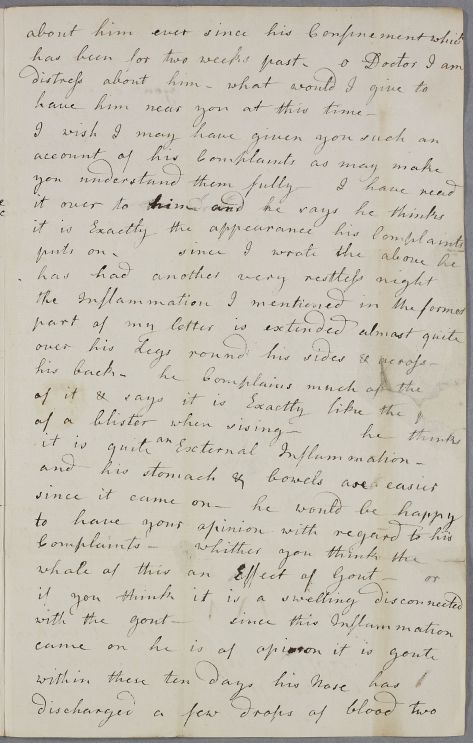 about him ever since his Confinement which
has been for two weeks past - o Doctor I am
distress about him - what would I give to
have him near you at this time -
I wish I may have given you such an
account of his Complaints as may make
you understand them fully I have read
it over to him and he says he thinks
it is Exactly the appearance his Complaints
puts on - since I wrote the above he
has had another very restless night
the Inflammation I mentioned in the former
part of my letter is extended almost quite
over his Legs round his sides & across -
his back - he Complains much of the
of it & says it is Exactly like the
of a blister when rising - he thinks
it is quite an External Inflammation -
and his stomach & bowels are easier
since it came on - he would be happy
to have your opinion with regard to his
Complaints - whither you think the
whole of this an Effect of Gout - or
if you think it is a swelling disconnected
with the gout - since this Inflammation
came on he is of opinion it is gout
within these ten days his Nose has
discharged a few drops of blood two